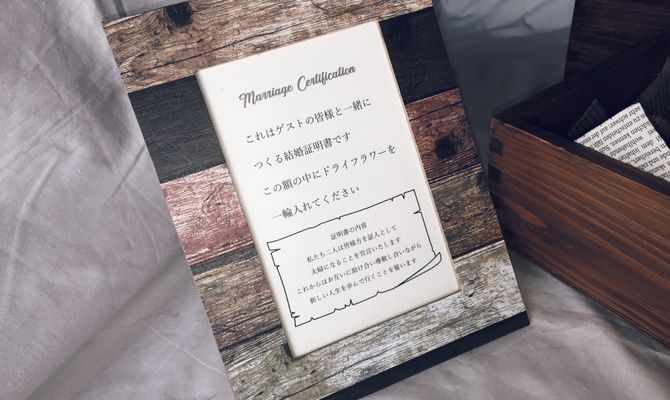 Marriage Certification
これはゲストの皆様と一緒に
つくる結婚証明書です
この額の中にドライフラワーを
一輪入れてください
証明書の内容
私たち二人は皆様方を証人として
夫婦になることを宣言いたします
これからはお互いに助け合い尊敬し合いながら
新しい人生を歩んで行くことを誓います